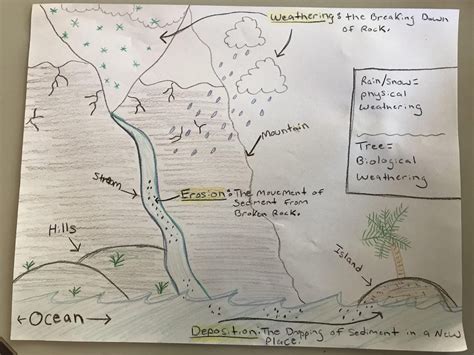 Weathering: the Breaking Down
of Rock.
Rain/Snow=
physical
weathering
Tree=
Biological
Weathering
Mountain
Stream
Erosion: The Movement of
Sediment from
Broken Rock.
Hills
Island
Ocean
Deposition: The Dropping of Sediment in a New
Place.